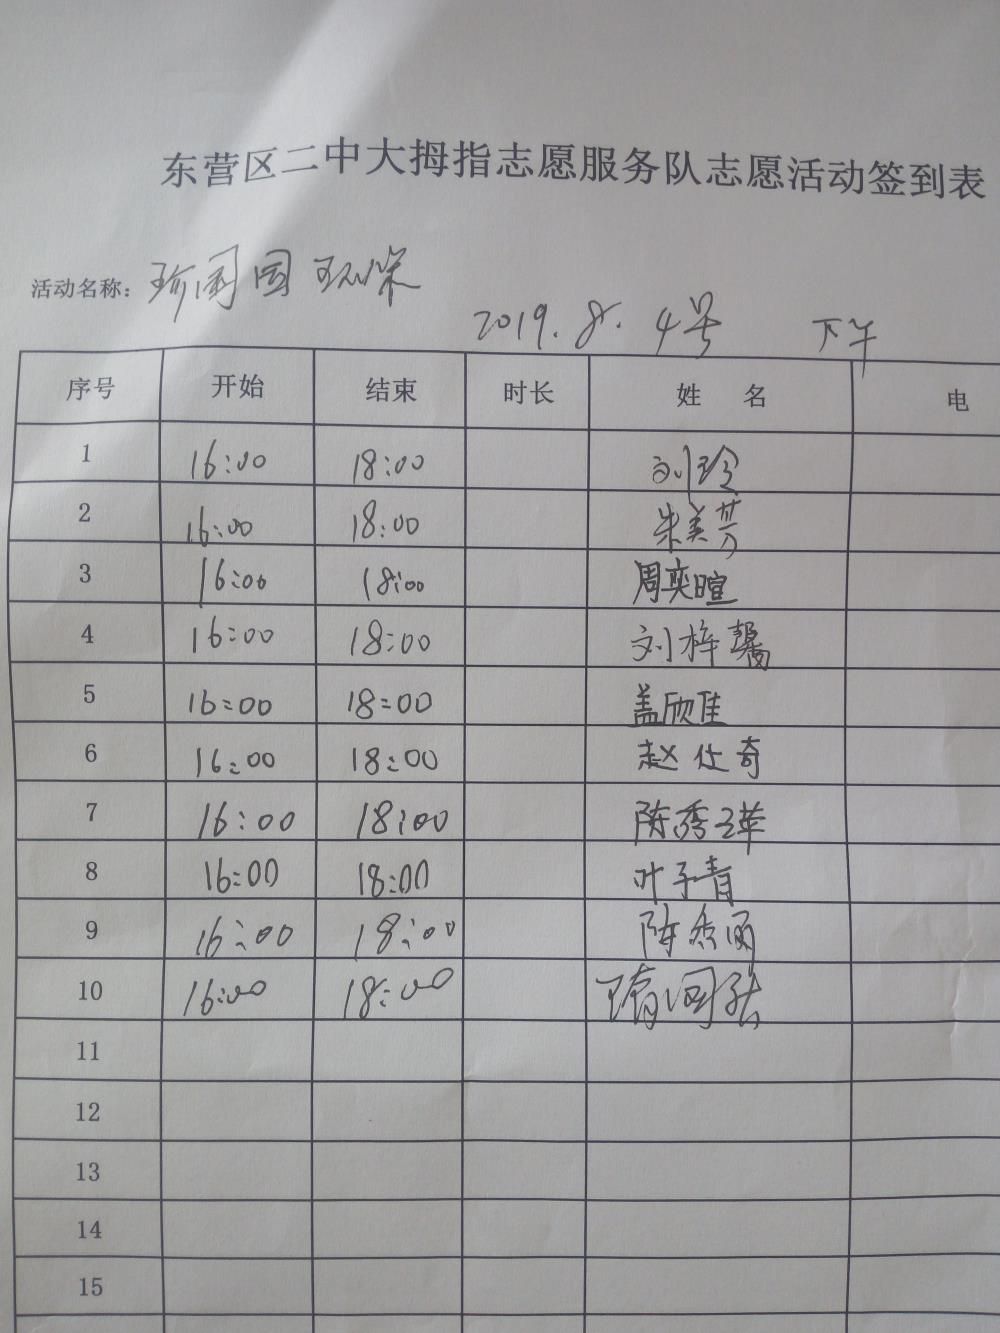 东营区二中大拇指志愿服务队志愿活动签到表
活动名称: 园 环保
2019.8.4号 下午
序号 开始 结束 时长 姓 名 电
1 16:00 18:00 刘玲
2 16:00 18:00 朱美芳
3 16:00 18:00 周奕暄
4 16:00 18:00 刘梓馨
5 16:00 18:00 盖欣佳
6 16:00 18:00 赵仕奇
7 16:00 18:00 陈秀苹
8 16:00 18:00 叶子青
9 16:00 18:00 陈秀丽
10 16:00 18:00
11
12
13
14
15